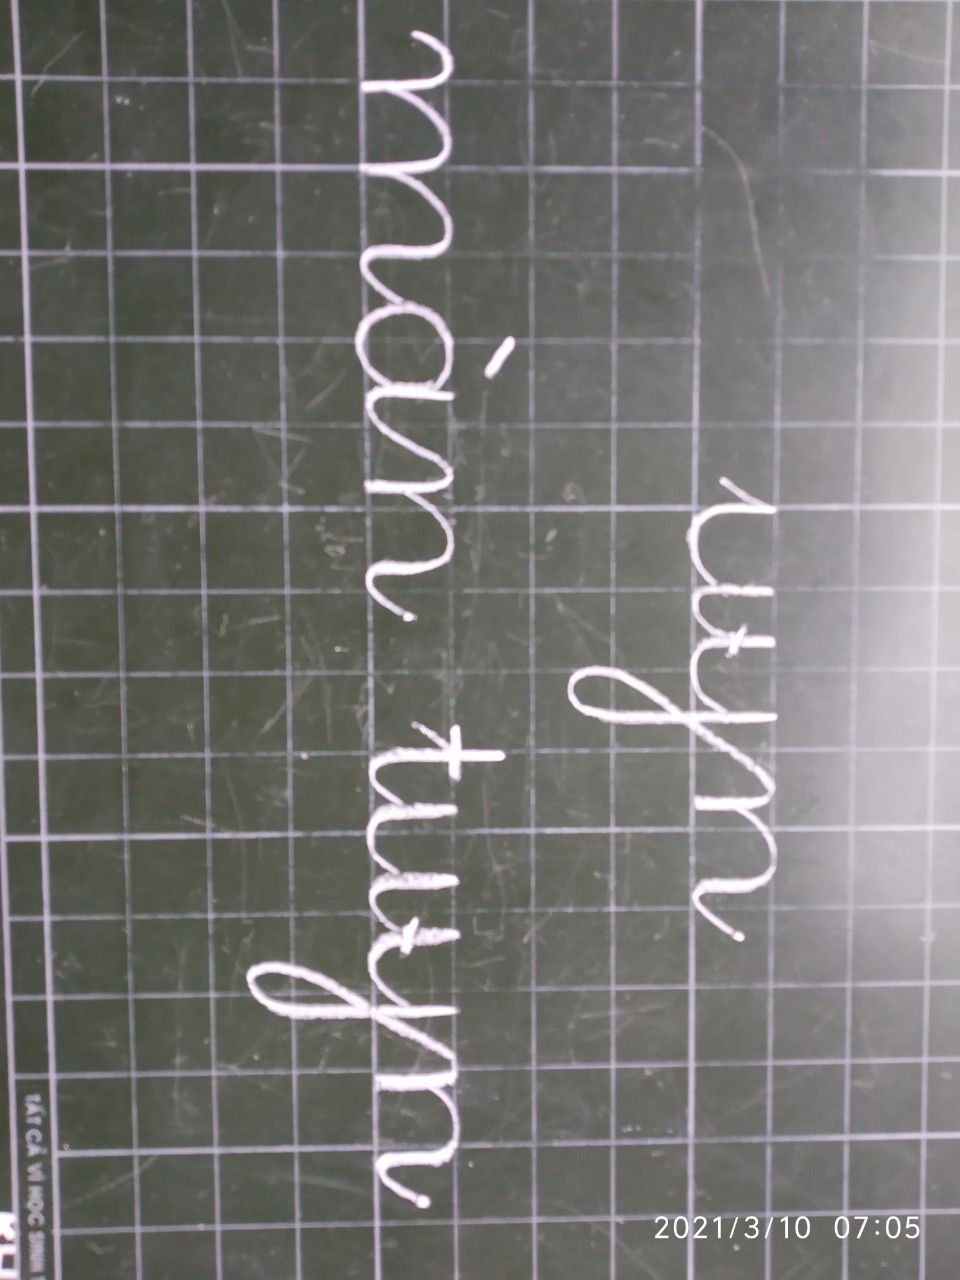 uyn
màn tuyn
TẤT CẢ VÌ HỌC SINH
2021/3/10 07:05